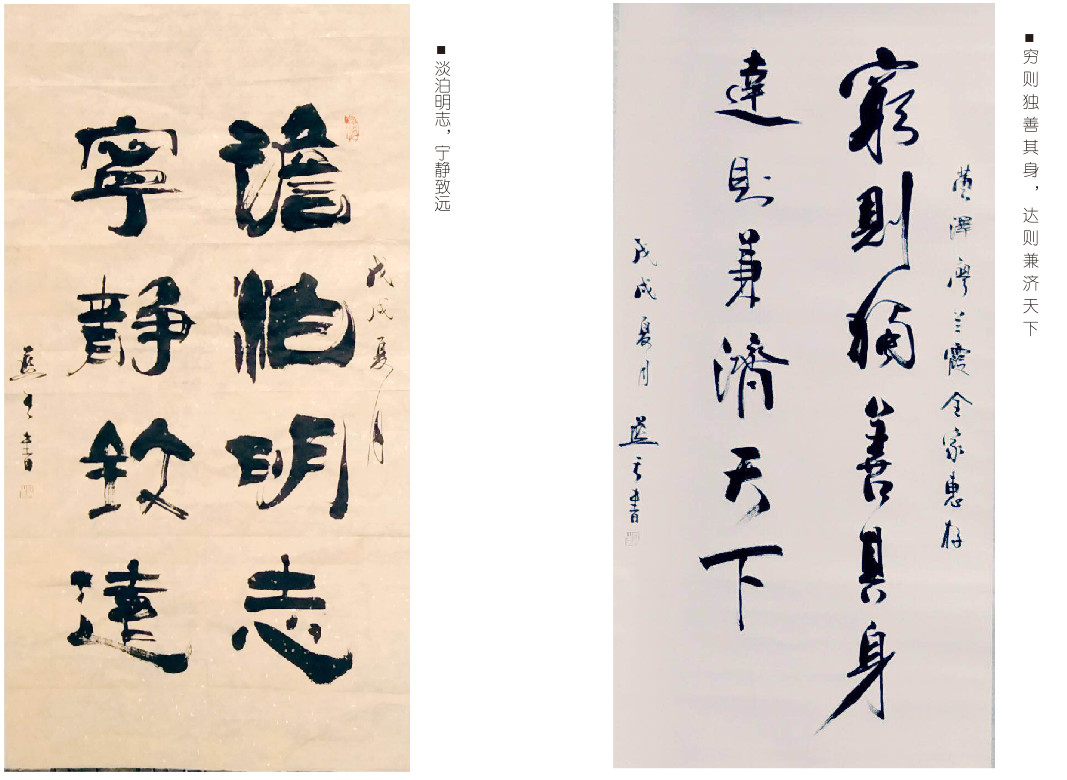 戊戌夏月
澹泊明志
寧靜致遠
書
淡泊明志，宁静致远
澤廖兰霞全家惠存
窮則獨善其身
達則兼濟天下
戊戌夏月 書
穷则独善其身，达则兼济天下